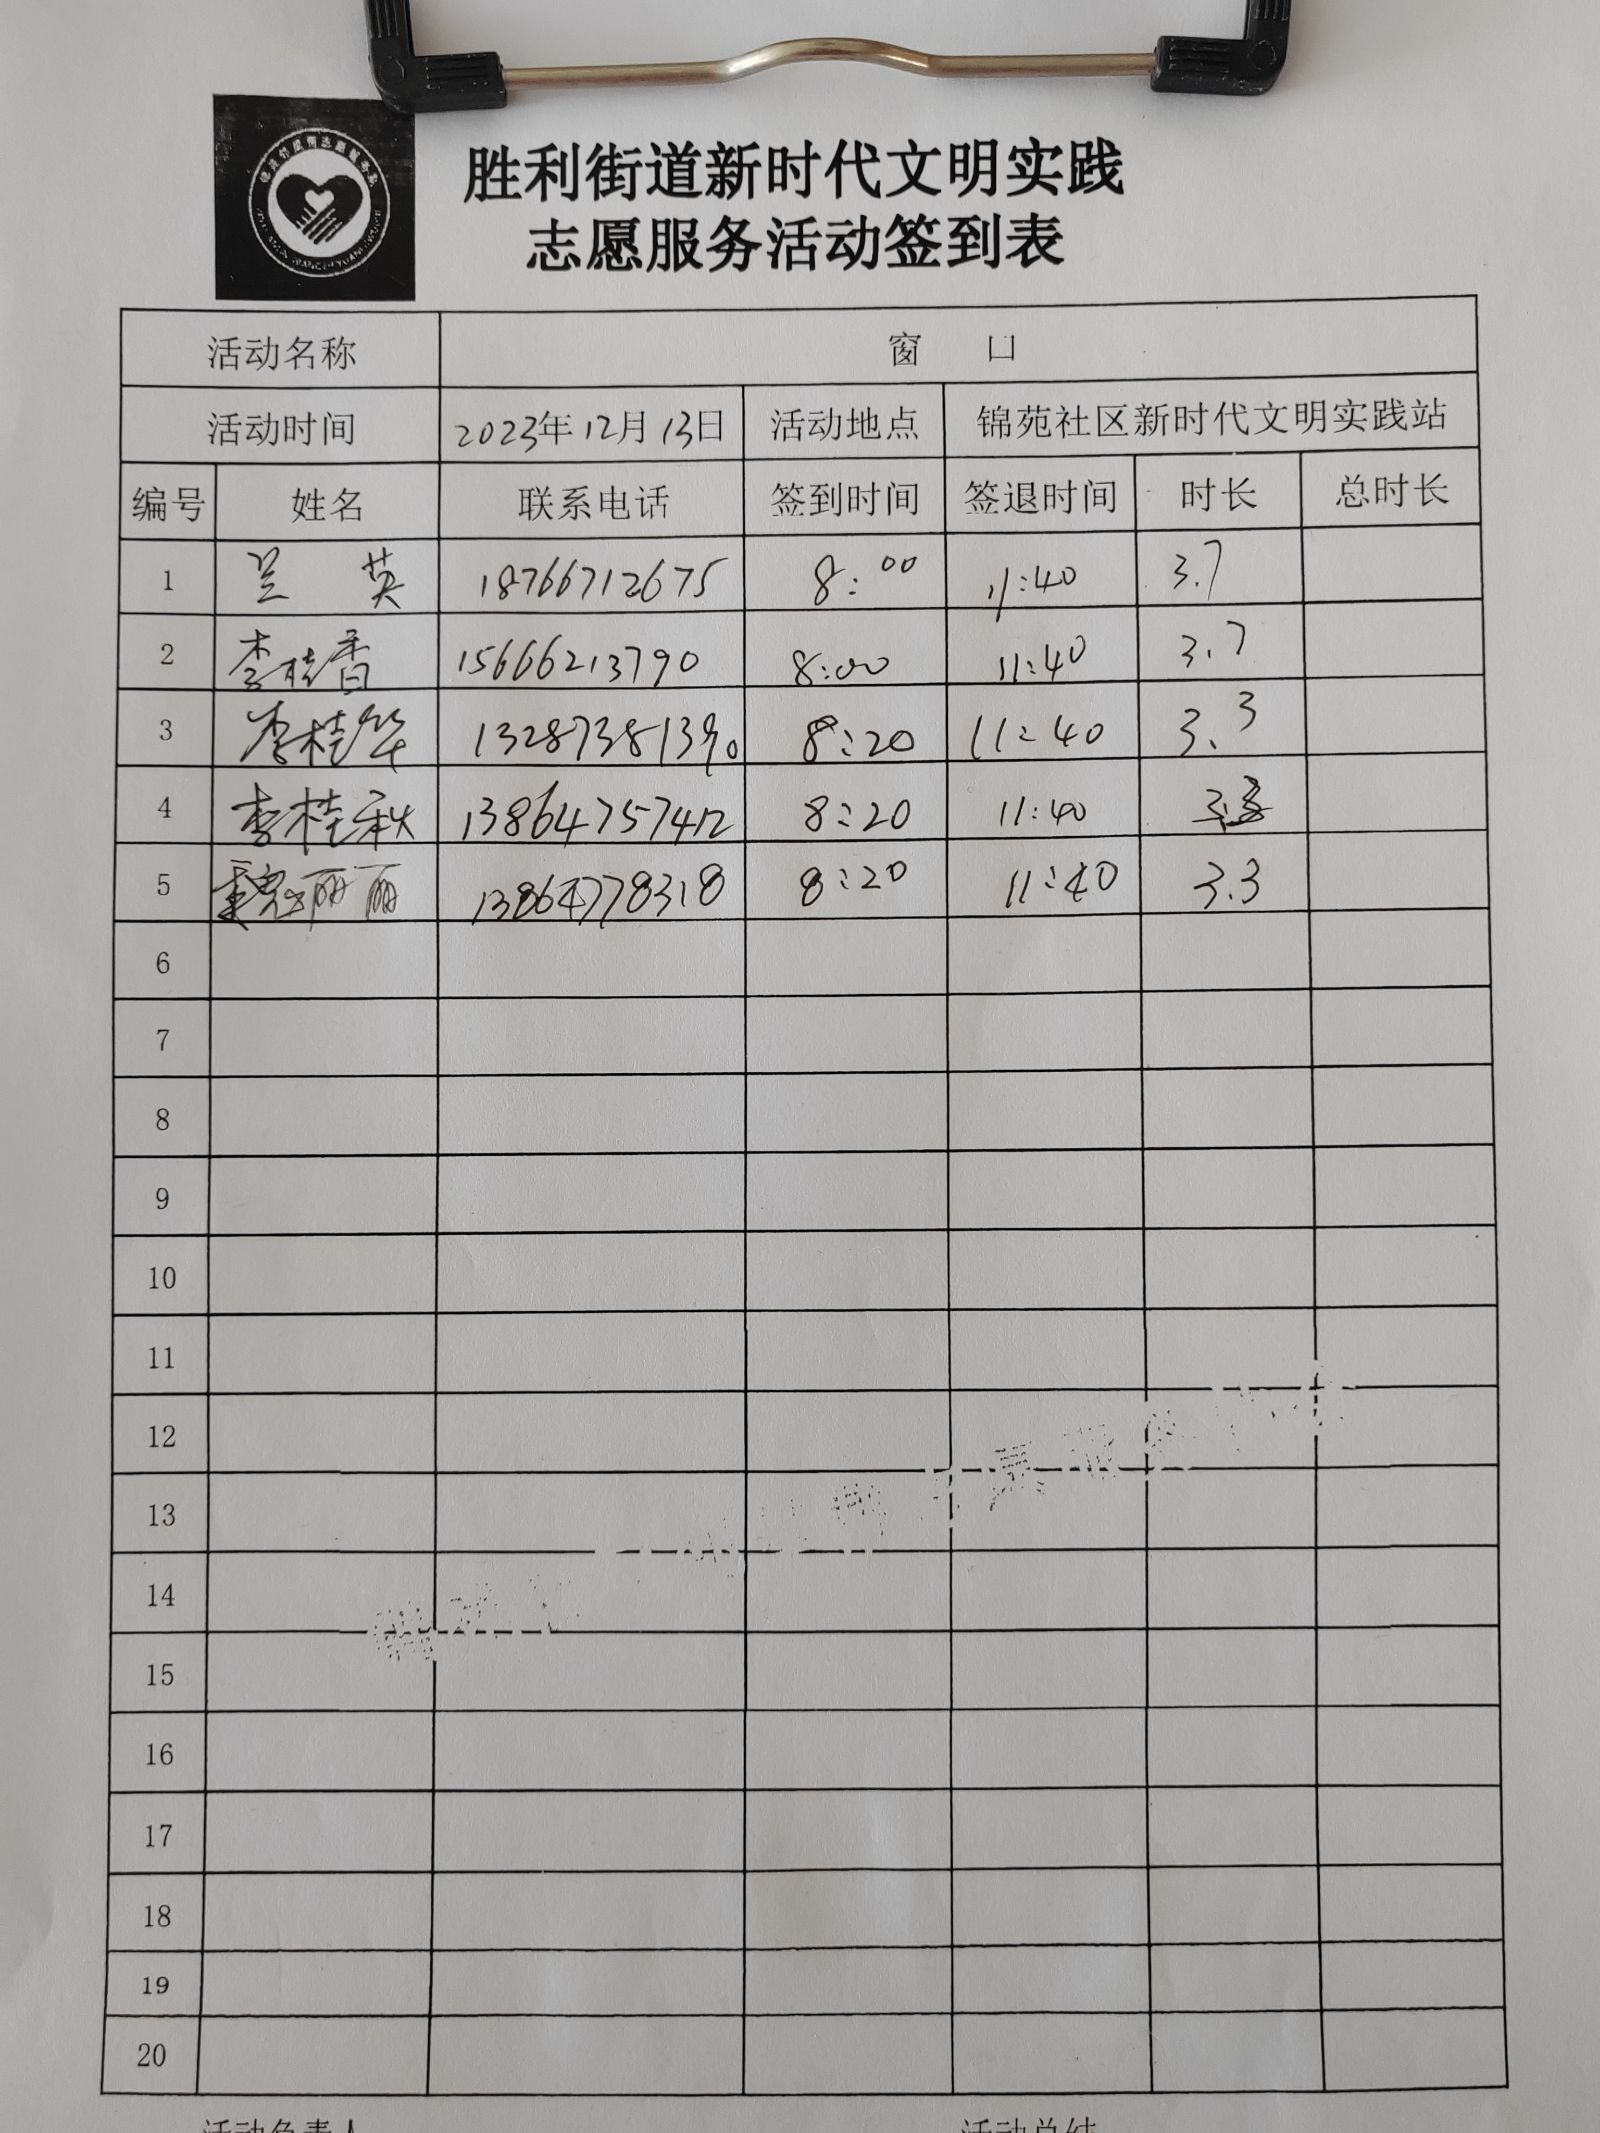 胜利街道新时代文明实践
志愿服务活动签到表
活动名称 窗 口
活动时间 2023年12月13日 活动地点 锦苑社区新时代文明实践站
编号 姓名 联系电话 签到时间 签退时间 时长 总时长
1 兰 英 18766712675 8:00 11:40 3.7
2 李桂香 15666213790 8:00 11:40 3.7
3 李桂华 13287381390 8:20 11:40 3.3
4 李桂秋 13864757412 8:20 11:40 3.3
5 魏丽丽 13864778318 8:20 11:40 3.3
6
7
8
9
10
11
12
13
14
15
16
17
18
19
20
活动负责人 活动总结